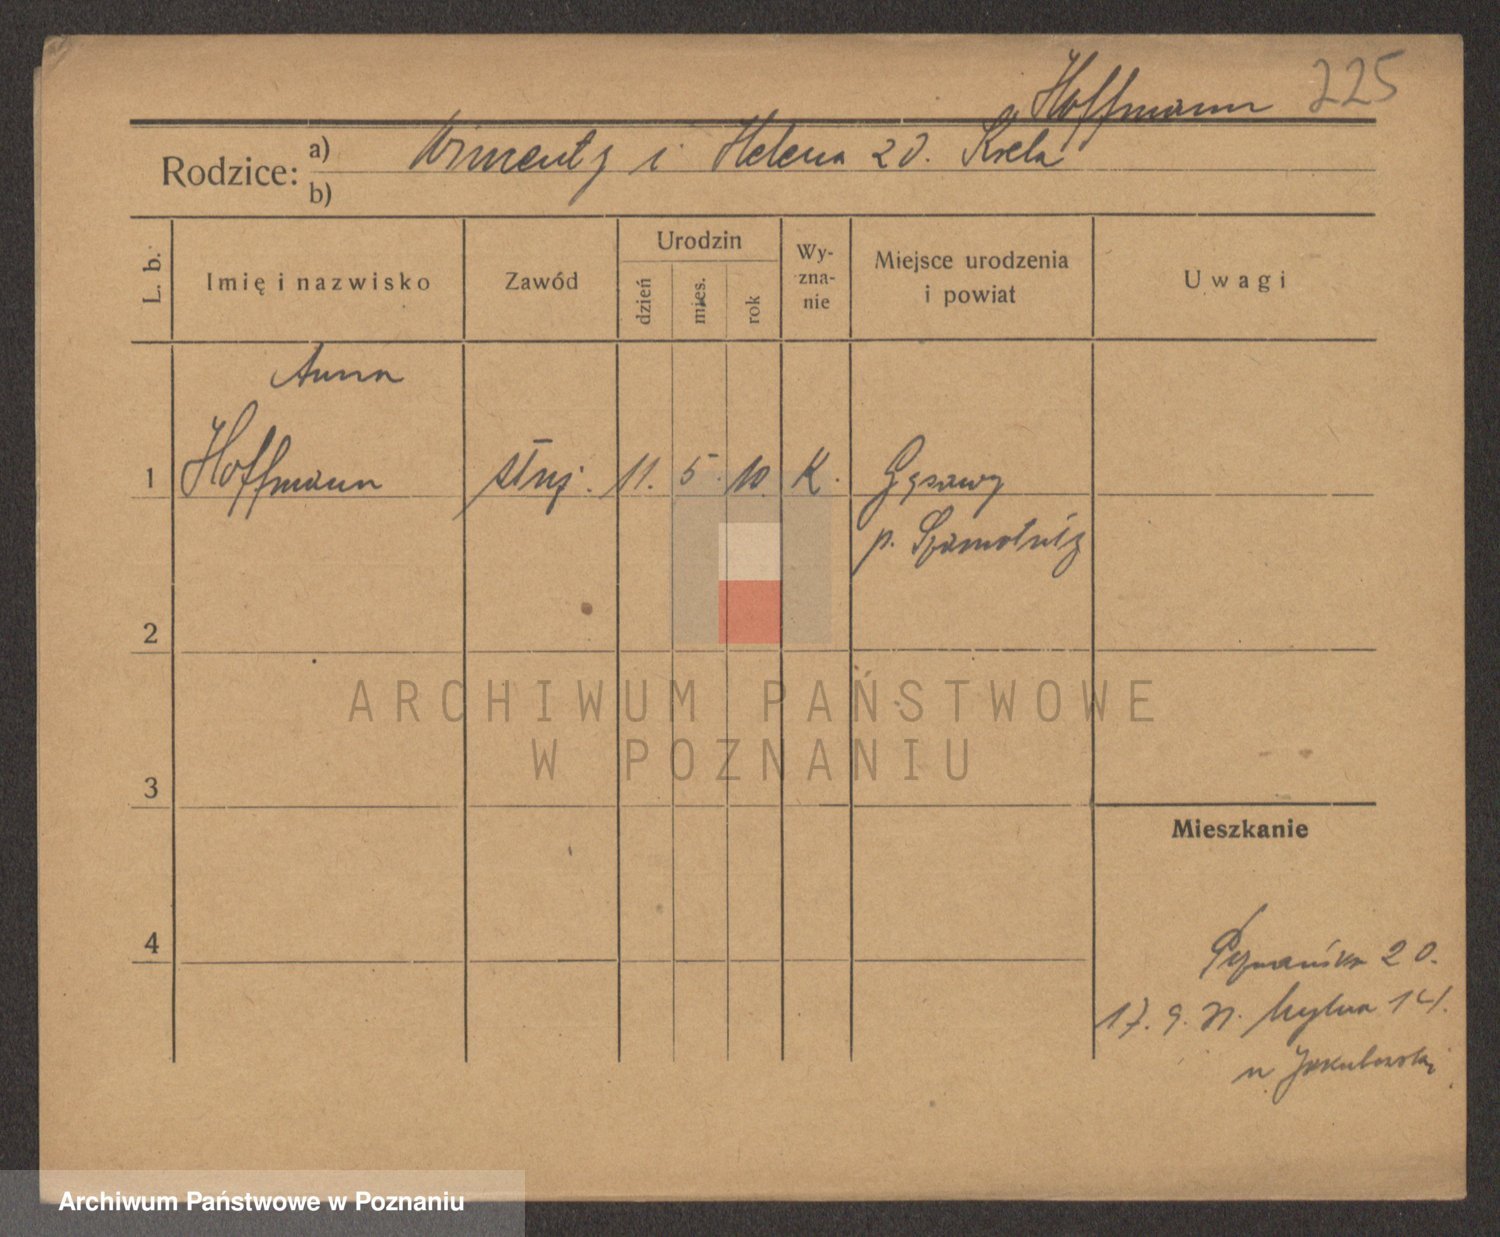 Hoffmann 225
Rodzice: a) i Helena zd. Krela
b)
L. b.
Imię i nazwisko
Zawód
Urodzin
dzień
mies.
rok
Wy-
zna-
nie
Miejsce urodzenia
i powiat
Uwagi
Anna
1 Hoffmann służ. 11. 5. 10. K. Gąsawy
p. Szamotuły
2
ARCHIWUM PAŃSTWOWE
W POZNANIU
3
Mieszkanie
4
Poznańska 20.
17. 9. 14.
u Jakubowski
Archiwum Państwowe w Poznaniu